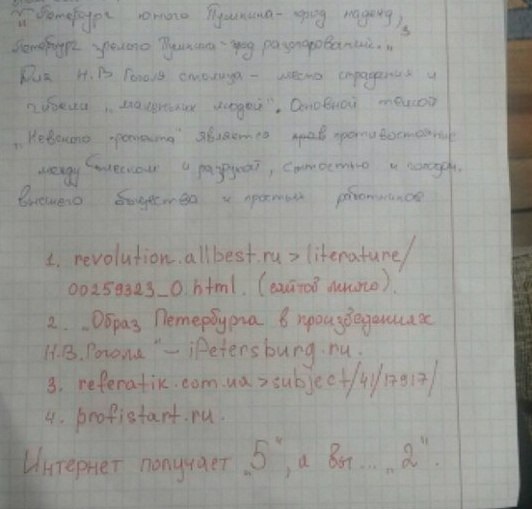 „Петербург юного Пушкина – город надежд,
Петербург зрелого Пушкина – город разочарований.„ 3
Для Н.В. Гоголя столица – место страдания и
гибели „маленьких людей". Основной темой
„Невского проспекта" является противостояние
между блеском и разрухой, сытостью и голодом,
высшего общества и простых работников
1. revolution.allbest.ru > literature/
00259323_0.html. (сайтов много).
2. „Образ Петербурга в произведениях
Н.В. Гоголя" – iPetersburg.ru.
3. referatik.com.ua>subject/41/17917/
4. profistart.ru.
Интернет получает „5", а вы... „2".